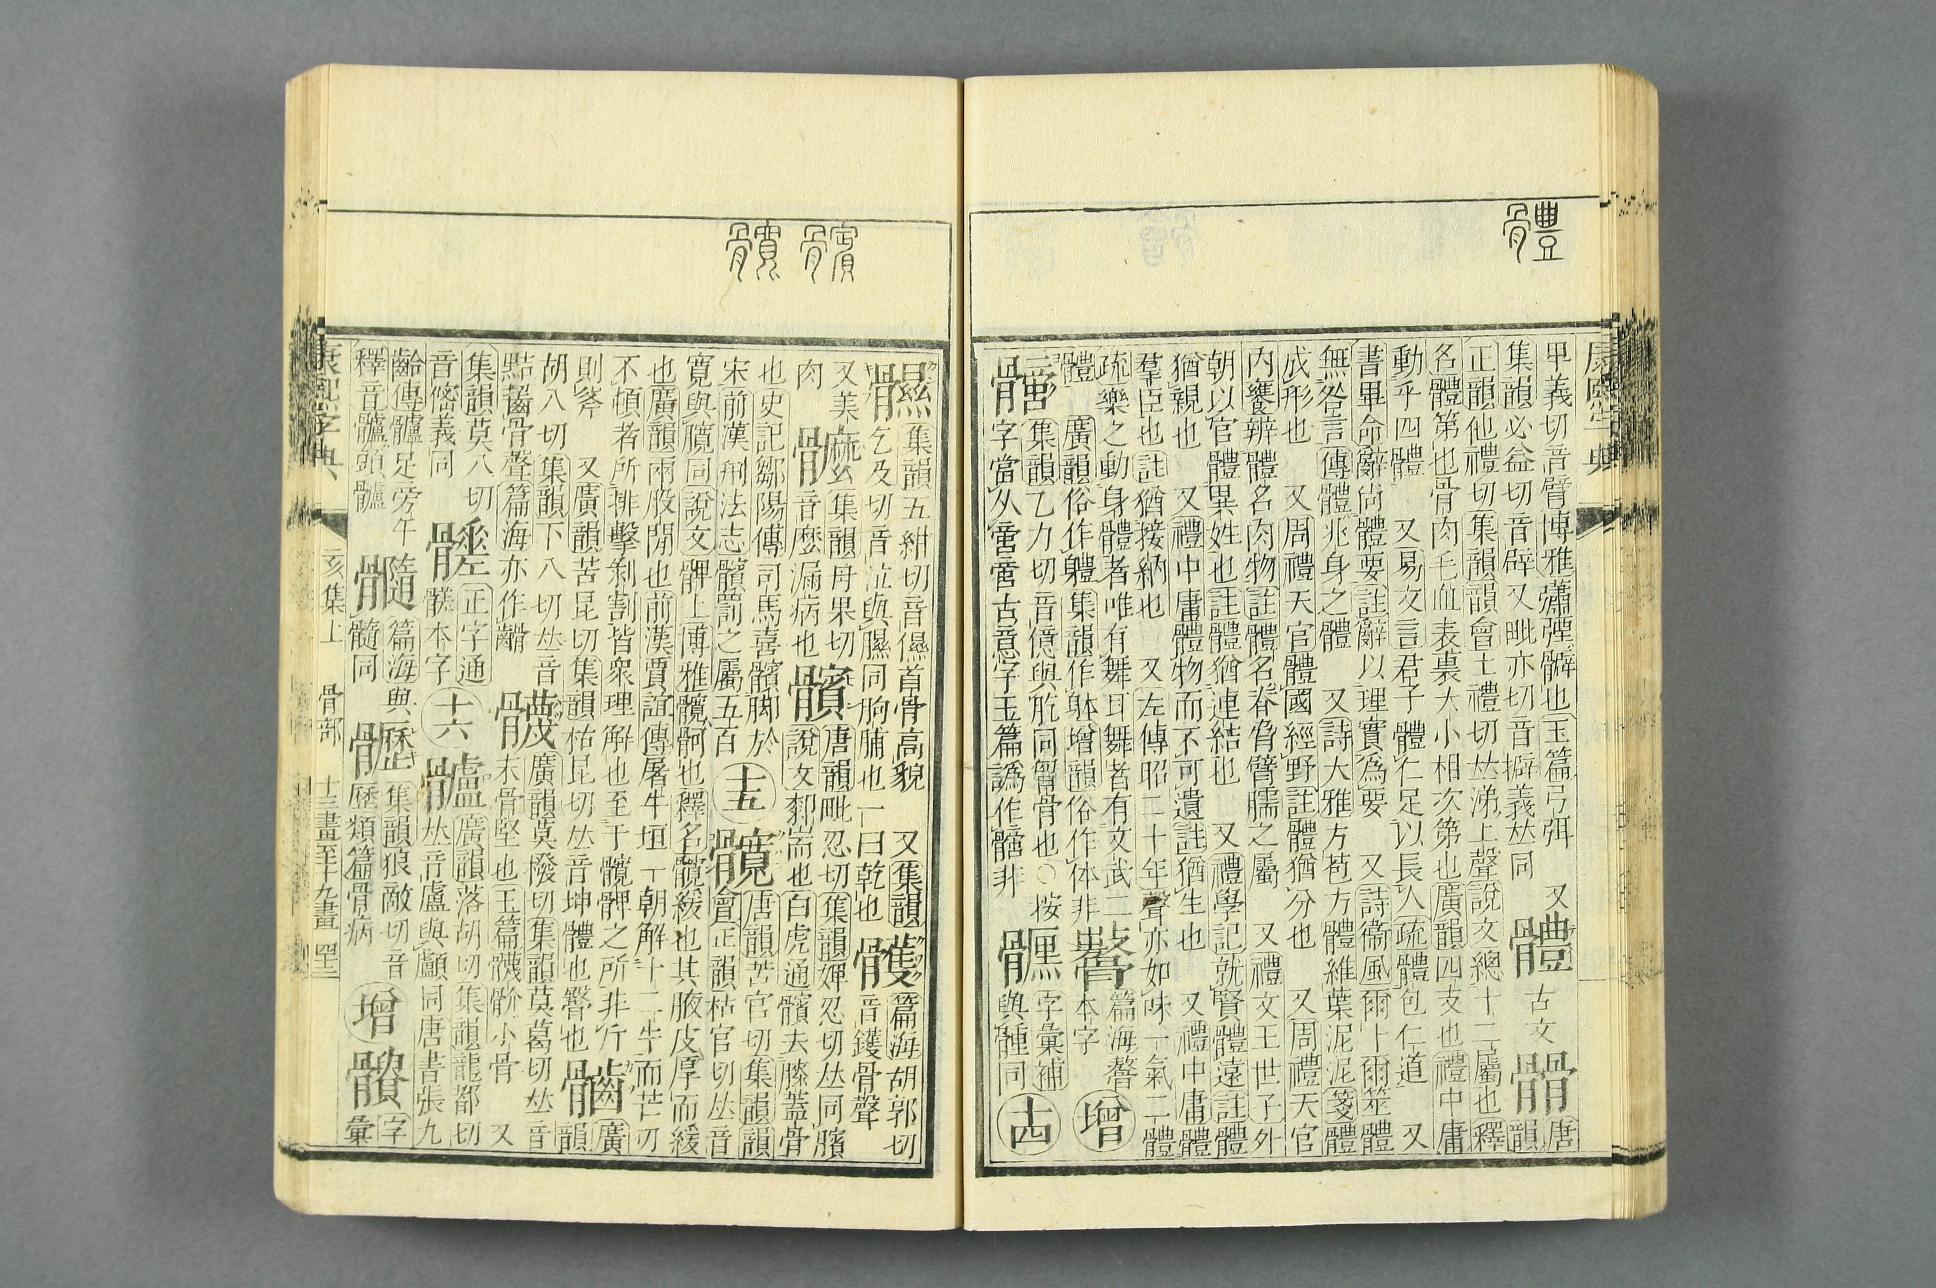 體
康熙字典
甲義切音臂博雅彇彃髀也玉篇弓弭 又
集韻必益切音辟又毗亦切音擗義𠀤同
體古文𩪆唐韻
正韻他禮切集韻韻會土禮切𠀤涕上聲說文總十二屬也釋
名體第也骨肉毛血表裏大小相次第也廣韻四支也禮中庸
動乎四體 又易文言君子體仁足以長人疏體包仁道 又
書畢命辭尚體要註辭以理實爲要 又詩衞風爾卜爾筮體
無咎言傳體兆身之體 又詩大雅方苞方體維葉泥泥箋體
成形也 又周禮天官體國經野註體猶分也 又周禮天官
內饔辨體名肉物註體名脊脅臂臑之屬 又禮文王世子外
朝以官體異姓也註體猶連結也 又禮學記就賢體遠註體
猶親也 又禮中庸體物而不可遺註猶生也 又禮中庸體
羣臣也註猶接納也 又左傳昭二十年聲亦如味一氣二體
疏樂之動身體者唯有舞耳舞者有文武二
體 廣韻俗作軆集韻作躰增韻俗作体非
篇海
本字 增
集韻乙力切音億與肊同 骨也○按
字當从𠶷𠶷古意字玉篇譌作 非
字彙補
與 同 十四
髕 髖
集韻五紺切音儑首骨高貌 又集韻
乞及切音泣與㬤同朐脯也一曰乾也
𩪝篇海胡郭切
音鑊骨聲
又美
肉
髍集韻母果切
音麼漏病也
髕唐韻毗忍切集韻婢忍切𠀤同臏
說文厀耑也白虎通髕去膝蓋骨
也史記鄒陽傳司馬喜髕脚於
宋前漢刑法志髕罰之屬五百
十五
髖唐韻苦官切集韻韻
會正韻枯官切𠀤音
寬與臗同說文髀上博雅髖䯊也釋名髖緩也其腋皮厚而緩
也廣韻兩股閒也前漢賈誼傳屠牛坦一朝解十二牛而芒刃
不頓者所排擊剝割皆衆理解也至于髖髀之所非斤
則斧 又廣韻苦昆切集韻枯昆切𠀤音坤體也臀也
廣韻
胡八切集韻下八切𠀤音
黠齧骨聲篇海亦作䶤
䯦廣韻莫撥切集韻莫葛切𠀤音
末骨堅也玉篇䯦骱小骨 又
集韻莫八切
音傛義同
正字通
髊本字
十六
髗廣韻落胡切集韻龍都切
𠀤音盧與顱同唐書張九
齡傳髗足旁午
釋音髗頭髗
篇海與
髓同
集韻狼敵切音
歷類篇骨病
增
字
彙
康熙字典
亥集上 骨部 十三畫至十九畫